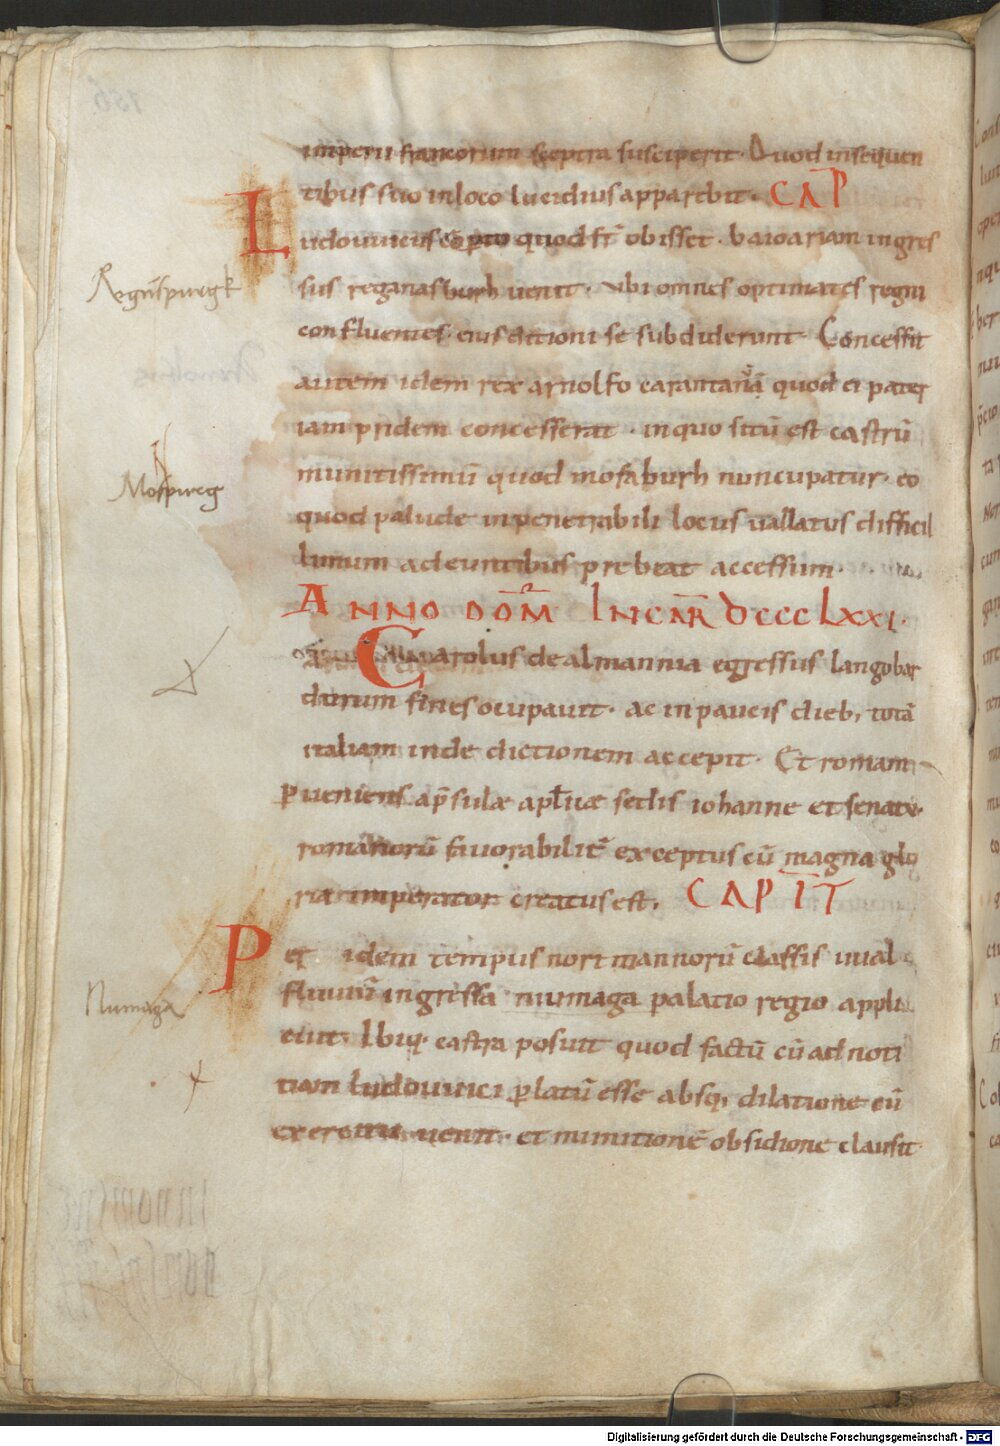 imperii francorum sceptra susciperit. Quod insequen
tibus suo inloco lucidius apparebit. CAP
Ludouuicus cōpto quod fr̄ obisset. baioariam ingres
Regn̄spuregk
sus reganasburh uenit. Vbi omnes optimates regni
confluentes eius ditioni se subdiderunt. Concessit
autem idem rex arnolfo carantanū quod ei pater
iam pridem concesserat. inquo sitū est castrū
Mospureg
munitissimū quod mosaburh nuncupatur. eo
quod palude inpenetrabili locus uallatus difficil
limum adeuntibus prebeat accessum.
ANNO DOM̄ INCAR̄ DCCCLXXI.
Karolus dealmannia egressus langobar
dorum fines ocupauit. ac inpaucis dieb, totā
italiam inde dictionem accepit. Et romam
ꝑueniens ap̄sulæ apl̄icæ sedis iohanne et senatu
romanorū fauorabilit̄ exceptus cū magna glo
ria imperator creatus est. CAPIT̄
Per idem tempus nortmannorū classis inual
Numaga
fluuiū ingressa numaga palatio regio appli
cuit. Ibiq. castra posuit quod factū cū ad noti
tiam ludouuici ꝑlatū esse absq, dilatione cū
exercitu uenit. et munitionē obsidione clausit